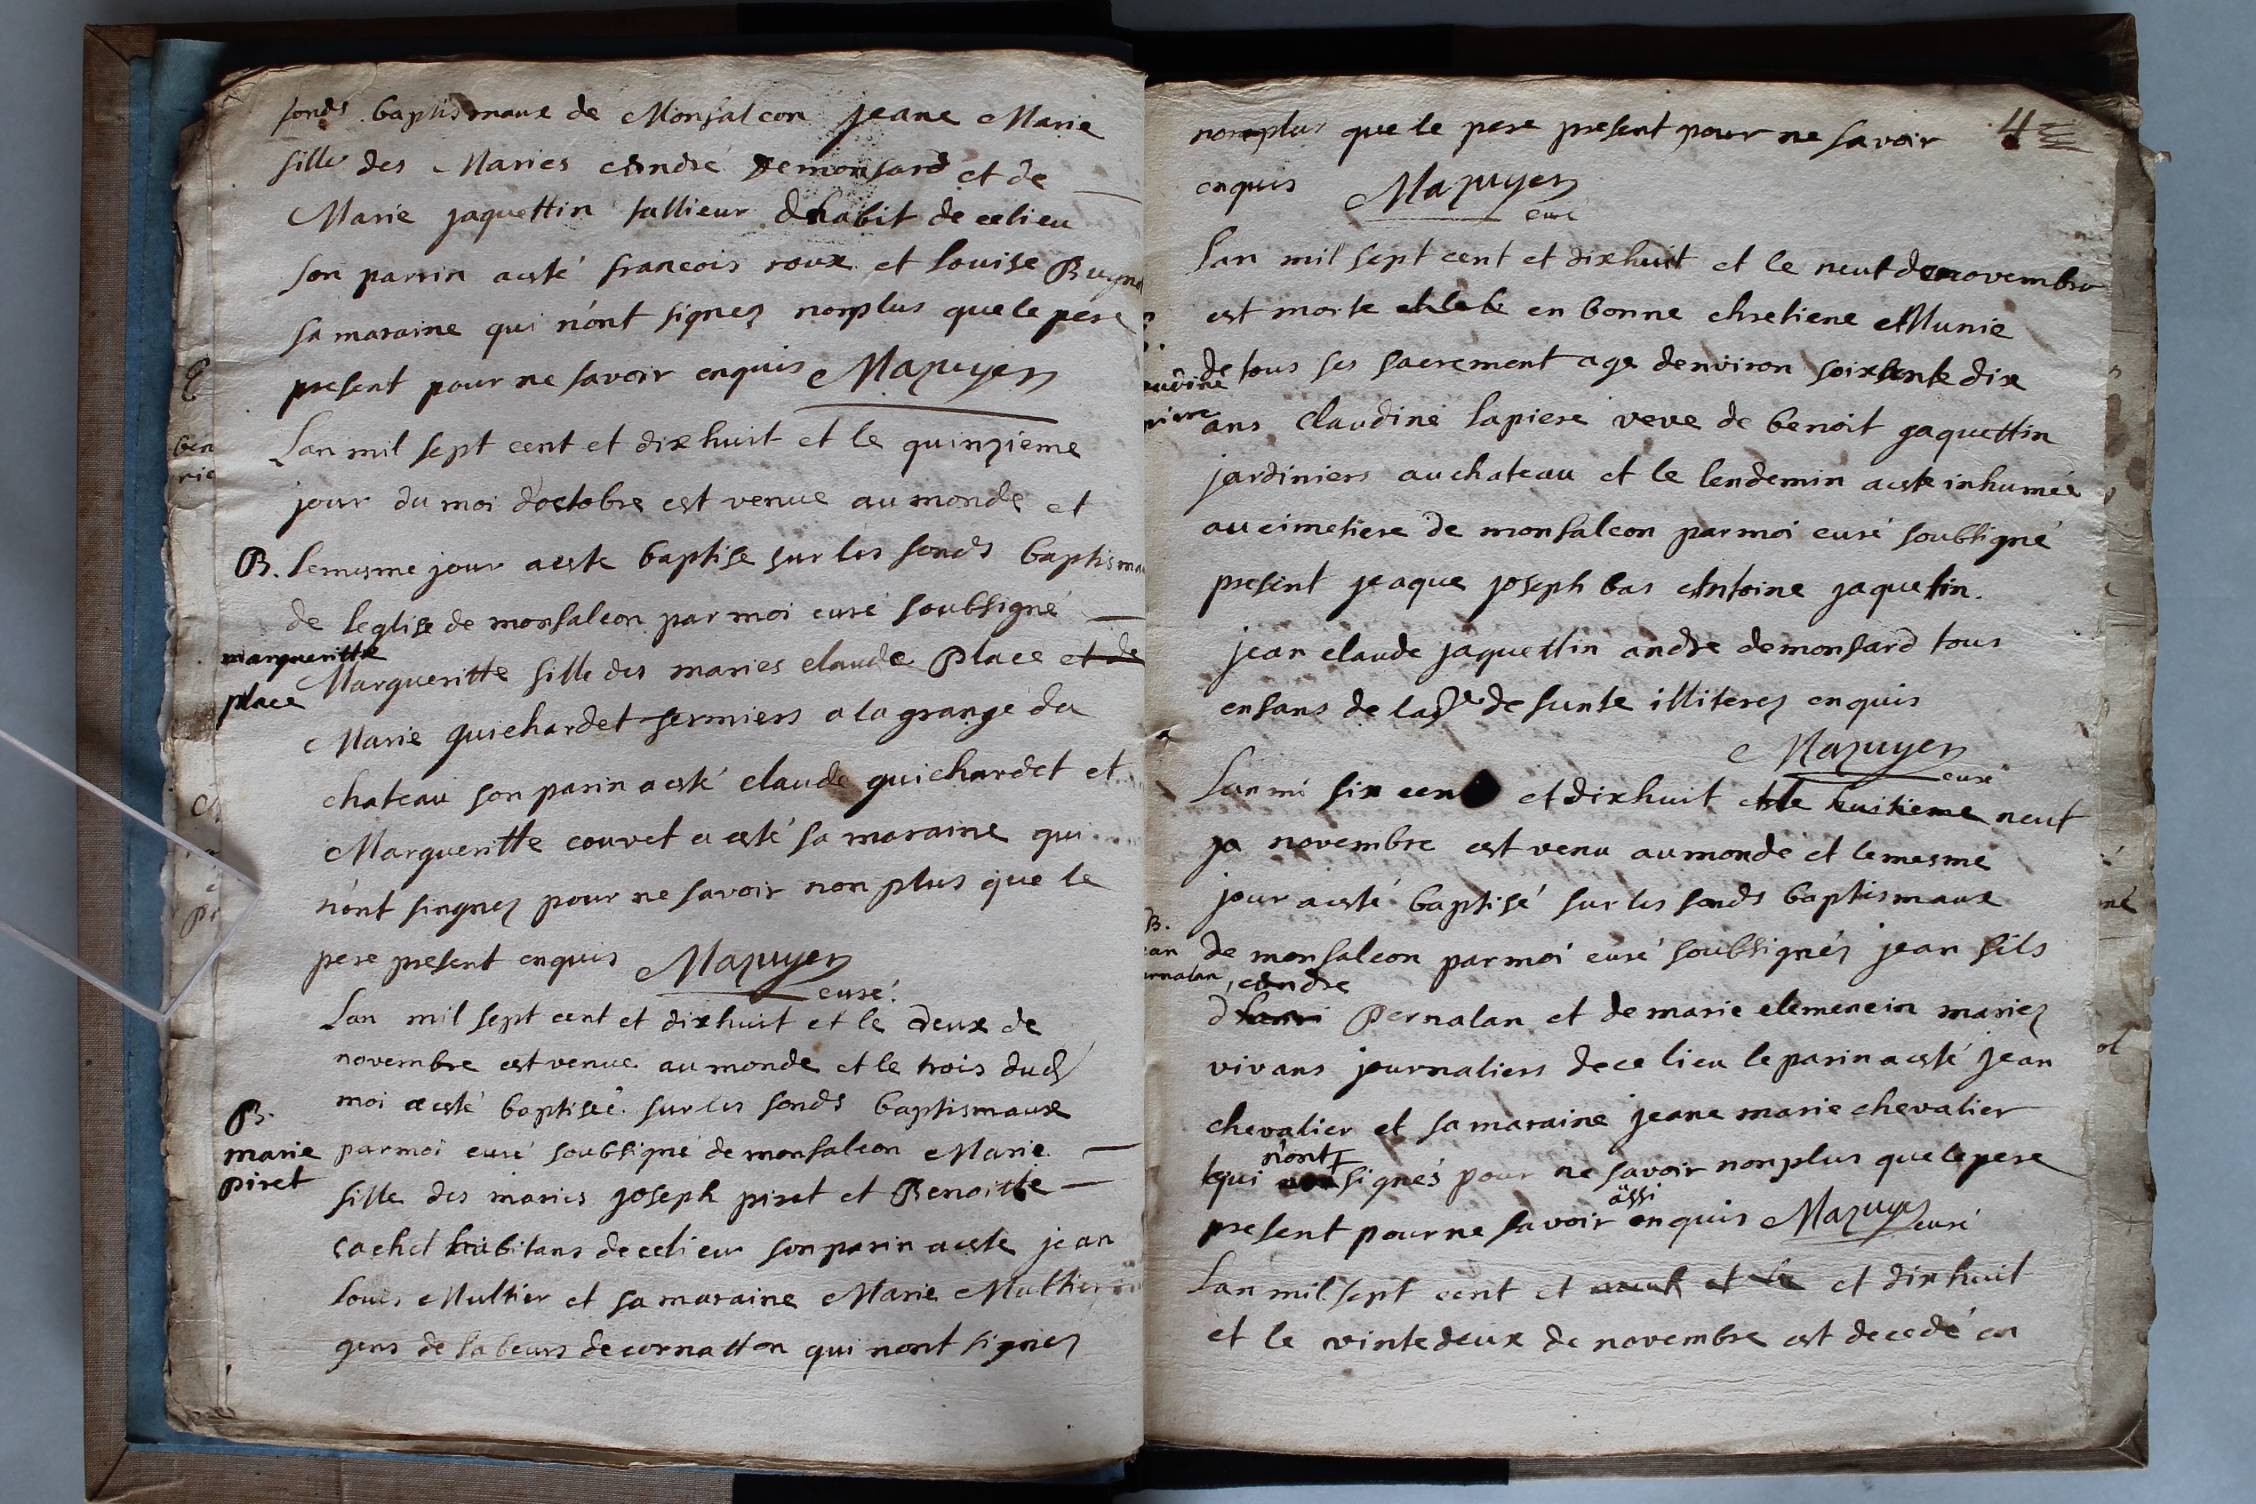 fonds baptismaux de Monfalcon jeane Marie
fille des Maries Andre Demonfard et de
Marie jaquettin tallieur D habit de ce lieu
son parrin a esté francois roux et Louise
sa maraine qui n'ont signez nonplus que le pere
present pour ne savoir enquis Mazuyer
Lan mil sept cent et dix huit et le quinzieme
jour du moi d'octobre est venue au monde et
B. le mesme jour a este baptise sur les fonds baptisma
de leglise de monfalcon par moi curé soubsigné
margueritte
Margueritte fille des maries claude Place et de
place
Marie guichardet fermiers a la grange du
chateau son parin a esté claude guichardet et
Margueritte couvet a esté sa maraine qui
n'ont singnez pour ne savoir non plus que le
pere present enquis Mazuyer
curé.
Lan mil sept cent et dixhuit et le deux de
novembre est venue au monde et le trois dud
moi a esté baptisée sur les fonds baptismaux
B.
marie
piret
par moi curé soubsigné de monfalcon Marie
fille des maries joseph piret et Benoitte
cachet habitans de ce lieu son parin a este jean
Louis Multier et sa maraine Marie
gens de labeurs de cornatton qui nont signez
4
nonplus que le pere present pour ne savoir
enquis Mazuyer
curé
Lan mil sept cent et dixhuit et le neuf de novembre
est morte en bonne chretiene et Munie
de tous ses sacrement age denviron soixante dix
ans Claudine lapiere veve de benoit jaquettin
jardiniers au chateau et le lendemin a este inhumée
au cimetiere de monfalcon par moi curé soubsigné
present jeaque joseph bas Antoine jaquetin.
jean claude jaquettin andre demonfard tous
enfans de lad defunte illiterez enquis
Mazuyer
curé
Lan mi six cent et dixhuit et le huitieme neuf
novembre est venu au monde et le mesme
jour a esté baptisé sur les fonds baptismaux
B.
ean
rnalan
de monfalcon par moi curé soubsignéz jean fils
andre
d henri Pernalan et de marie clemencin mariez
vivans journaliers de ce lieu le parin a esté jean
chevalier et sa maraine jeane marie chevalier
n'ont
qui signés pour ne savoir nonplus que le pere
assi
present pour ne savoir enquis Mazuyer curé
Lan mil sept cent et neuf et le et dix huit
et le vinte deux de novembre est decedé en